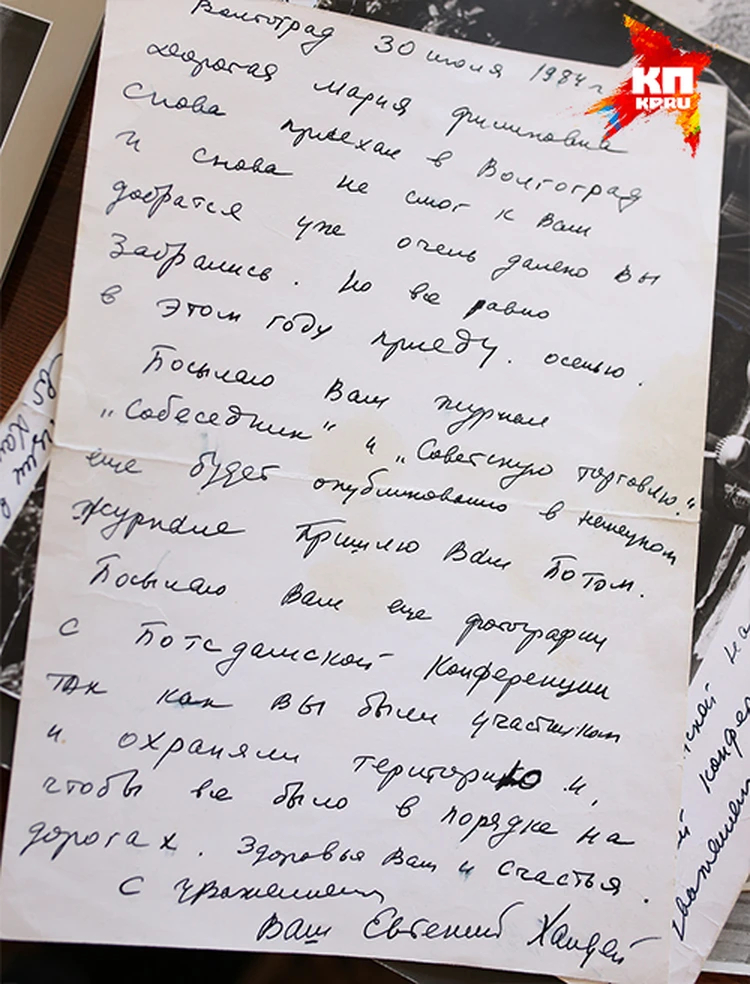 Волгоград 30 июля 1984 г
Дорогая Мария Филиповна
Снова приехал в Волгоград
и снова не смог к Вам
добратся уже очень далеко Вы
Забрались. Но все равно
в этом году приеду. осенью.
Посылаю Вам журнал
„Собеседник" и „Советскую торговлю."
еще будет опубликовано в немецком
журнале Пришлю Вам Потом.
Посылаю Вам еще фотографии
с Потсдамской Конференции
так как Вы были участником
и охраняли територию и,
чтобы все было в порядке на
дорогах. Здоровья Вам и счастья.
С уважением
Ваш Евгений Халдей
КП
KP.RU